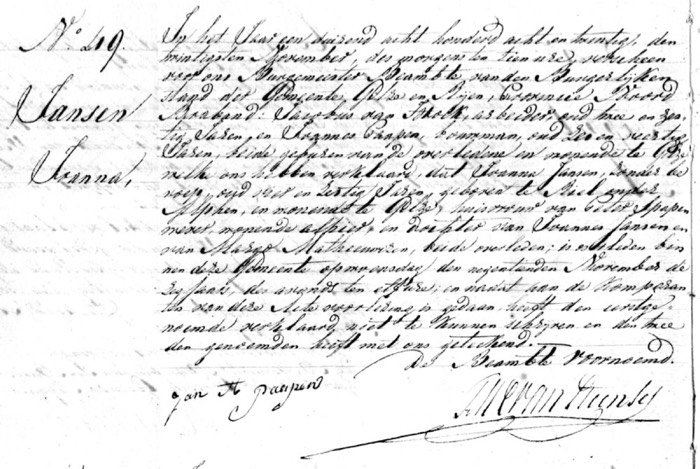 No 49.
Jansen
Joanna,
In het Jaar een duizend acht honderd acht en twintig, den
twintigsten November, des morgens ten tien ure, verscheen
voor ons Burgemeester Beambte van den Burgerlijken
stand der Gemeente Gilze en Rijen, Provincie Noord
Braband: Jacobus van Hoek, arbeider, oud twee en zes
tig Jaren, en Joannes Paapen, bouwman, oud zes en veertig
Jaren, beide geburen van de overledene en wonende te Gilze
welke ons hebben verklaard, dat Joanna Jansen, zonder be
roep, oud vier en zestig Jaren, geboren te Riel onder
Alphen, en wonende te Gilze, huisvrouw van Peter
wever, wonende alhier, en dogter van Joannes Jansen en
van Maria Matheeuwizen, beide overleden; is overleden bin
nen deze Gemeente op woensdag den negentienden November de
zes Jaar, de avonds ten elf ure; en nadat aan de Komparan
ten van deze Acte voorlezing is gedaan, heeft den eerstge
noemde verklaard niet te kunnen schrijven en den twee
den genoemden heeft met ons geteekend.
De Beambte voornoemd.
Jan A paapen